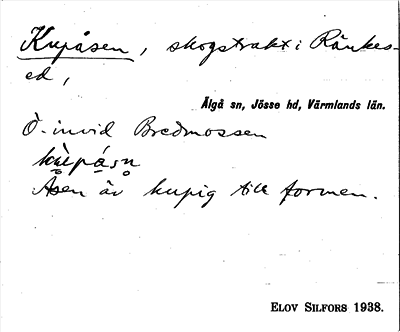 Kupåsen, skogstrakt i Ränkes-
ed,
Älgå sn, Jösse hd, Värmlands län.
Ö. invid Bredmossen
Åsen är kupig till formen.
ELOV SILFORS 1938.